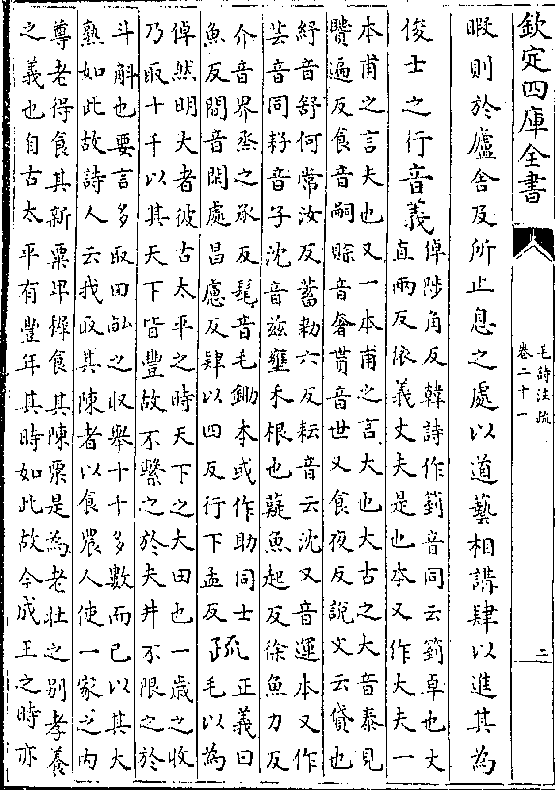 欽定四庫全書
毛詩注疏
卷二十一
二
暇則於廬舎及所止息之處以道藝相講肄以進其為
俊士之行音義
倬陟角反韓詩作箌音同云箌卓也丈
直兩反依義丈夫是也本又作大夫一
本甫之言夫也又一本甫之言大也大古之大音泰見
賢遍反食音嗣賒音奢貰音世又食夜反説文云貸也
紓音舒何常汝反蓄勅六反耘音云沈又音運本又作
芸音同耔音子沈音兹壅禾根也薿魚起反徐魚力反
介音界烝之承反髦音毛鋤本或作助同士
魚反閒音閑處昌慮反肄以四反行下孟反
疏
正義曰
毛以為
倬然明大者彼古太平之時天下之大田也一歲之收
乃取十千以其天下皆豐故不繫之於夫井不限之於
斗斛也要言多取田畝之收舉十千多數而已以其大
熟如此故詩人云我取其陳者以食農人使一家之内
尊老得食其新粟卑穉食其陳粟是為老壯之別孝養
之義也自古太平有豐年其時如此故今成王之時亦